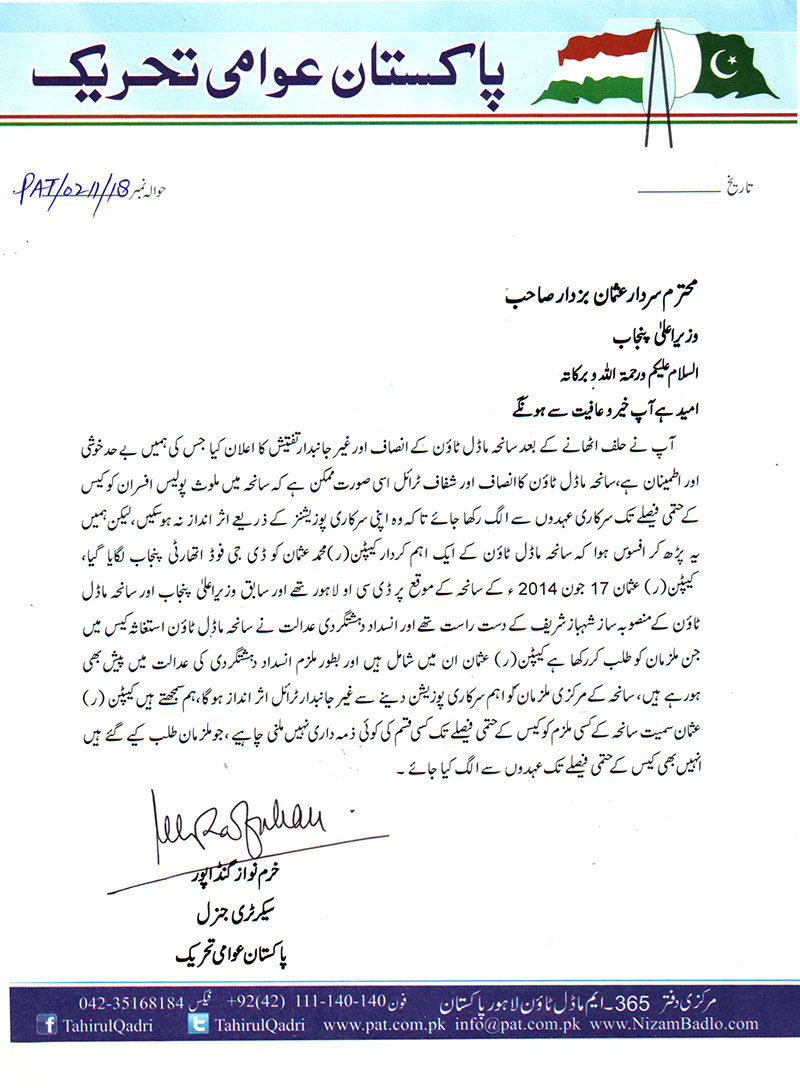 پاکستان عوامی تحریک
حوالہ نمبر PAT/0211/18
تاریخ
محترم سردار عثمان بزدار صاحب
وزیراعلیٰ پنجاب
السلام علیکم ورحمۃ اللہ و برکاتہ
امید ہے آپ خیر و عافیت سے ہونگے
آپ نے حلف اٹھانے کے بعد سانحہ ماڈل ٹاؤن کے انصاف اور غیر جانبدار تفتیش کا اعلان کیا جس کی ہمیں بے حد خوشی
اور اطمینان ہے،سانحہ ماڈل ٹاؤن کا انصاف اور شفاف ٹرائل اسی صورت ممکن ہے کہ سانحہ میں ملوث پولیس افسران کو کیس
کے حتمی فیصلے تک سرکاری عہدوں سے الگ رکھا جائے تاکہ وہ اپنی سرکاری پوزیشنز کے ذریعے اثر انداز نہ ہوسکیں،لیکن ہمیں
یہ پڑھ کر افسوس ہوا کہ سانحہ ماڈل ٹاؤن کے ایک اہم کردار کیپٹن(ر)محمد عثمان کو ڈی جی فوڈ اتھارٹی پنجاب لگایا گیا،
کیپٹن(ر) عثمان 17 جون 2014ء کے سانحہ کے موقع پر ڈی سی او لاہور تھے اور سابق وزیراعلیٰ پنجاب اور سانحہ ماڈل
ٹاؤن کے منصوبہ ساز شہباز شریف کے دست راست تھے اور انسداد دہشتگردی عدالت نے سانحہ ماڈل ٹاؤن استغاثہ کیس میں
جن ملزمان کو طلب کر رکھا ہے کیپٹن(ر) عثمان ان میں شامل ہیں اور بطور ملزم انسداد دہشتگردی کی عدالت میں پیش بھی
ہورہے ہیں، سانحہ کے مرکزی ملزمان کو اہم سرکاری پوزیشن دینے سے غیر جانبدار ٹرائل اثر انداز ہوگا،ہم سمجھتے ہیں کیپٹن (ر)
عثمان سمیت سانحہ کے کسی ملزم کو کیس کے حتمی فیصلے تک کسی قسم کی کوئی ذمہ داری نہیں ملنی چاہیے،جو ملزمان طلب کیے گئے ہیں
انہیں بھی کیس کے حتمی فیصلے تک عہدوں سے الگ کیا جائے۔
خرم نواز گنڈاپور
سیکرٹری جنرل
پاکستان عوامی تحریک
مرکزی دفتر 365۔ایم ماڈل ٹاؤن لاہور پاکستان فون +92(42) 111-140-140 فیکس 042-35168184
TahirulQadri TahirulQadri www.pat.com.pk info@pat.com.pk www.NizamBadlo.com